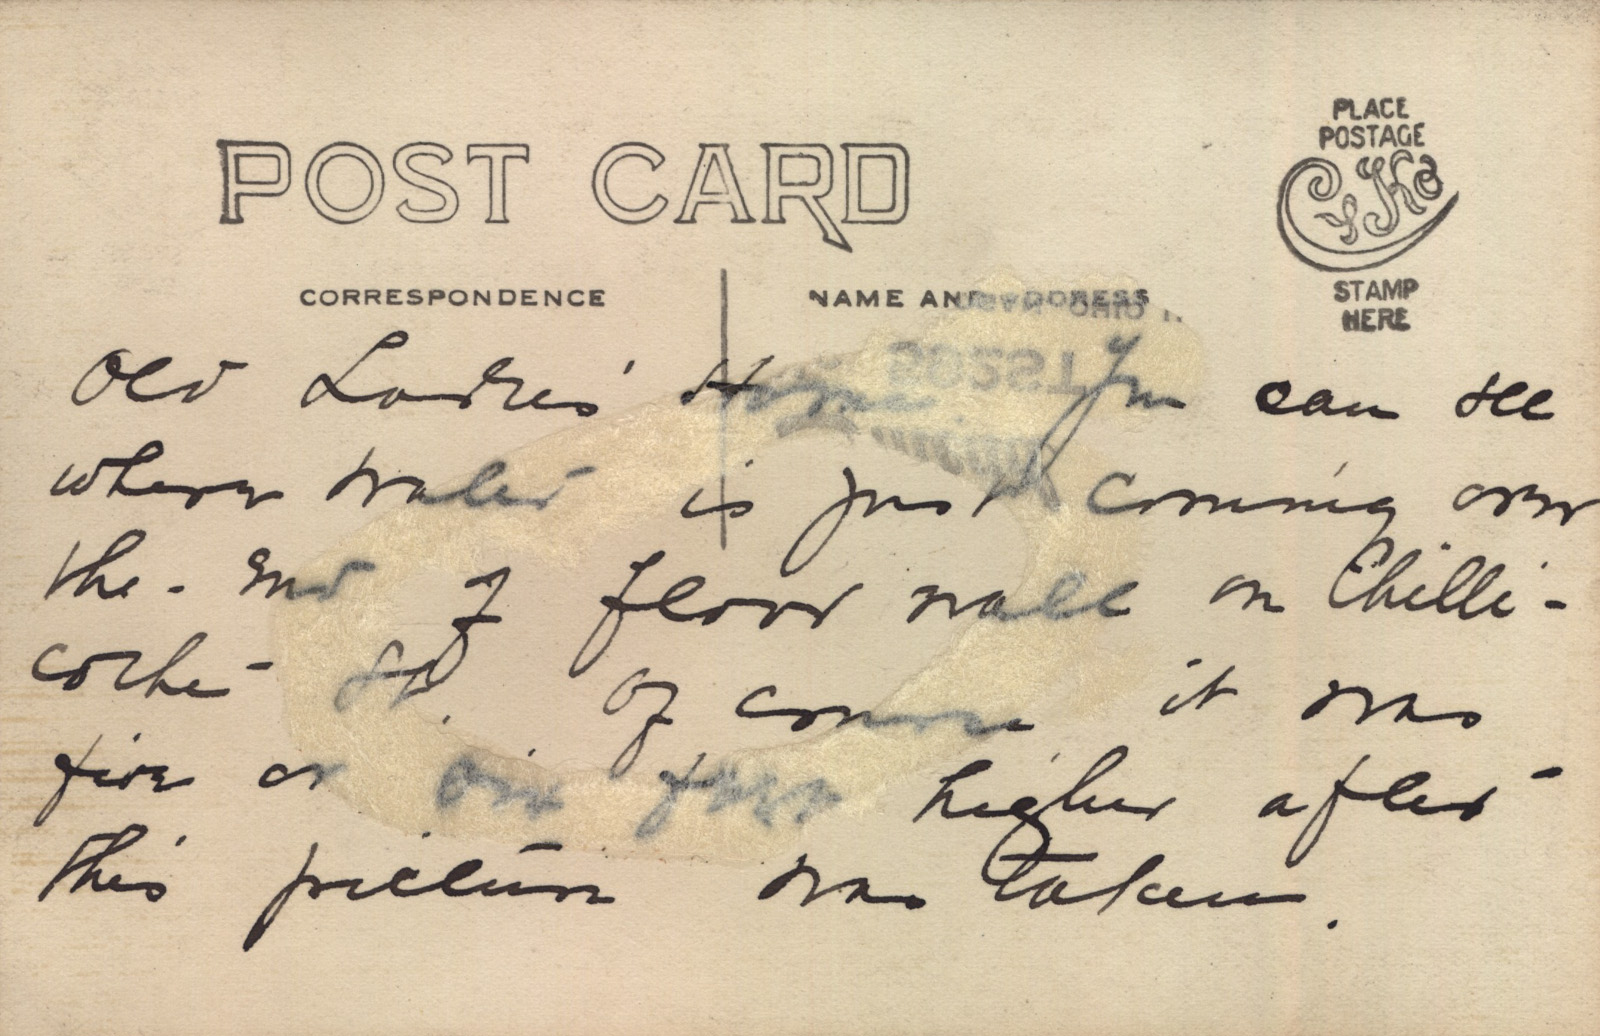 PLACE
POSTAGE
CYKO
STAMP
HERE
POST CARD
CORRESPONDENCE
NAME AND ADDRESS
Old Ladies' Home You can see
where water is just coming over
the - end of flood wall on Chilli-
cothe - St. Of course it was
five or six feet higher after
this picture was taken.